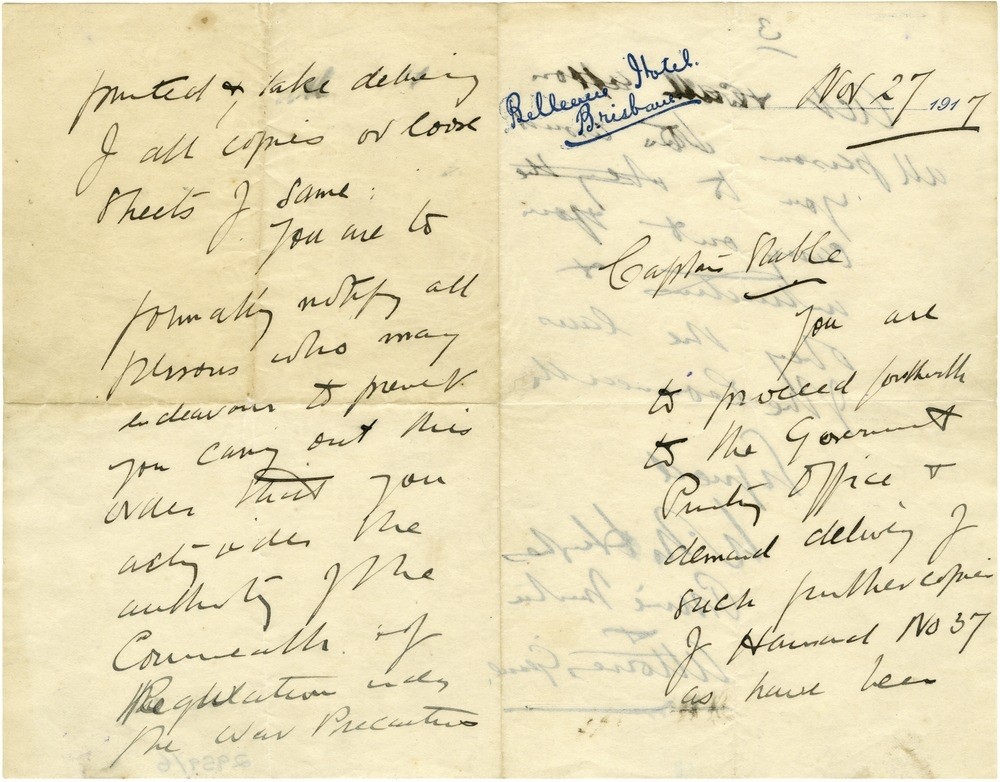 Bellevue Hotel.
Brisbane
Nov 27 1917
Captain Stable
You are
to proceed forthwith
to the Government
Printing Office &
demand delivery of
such further copies
of Hansard No 37
as have been
printed & take delivery
of all copies or loose
sheets of same.
You are to
formally notify all
persons who may
endeavour to prevent
you carry out this
order that you
act under the
authority of the
Commonwealth of
Regulation under
the War Precautions